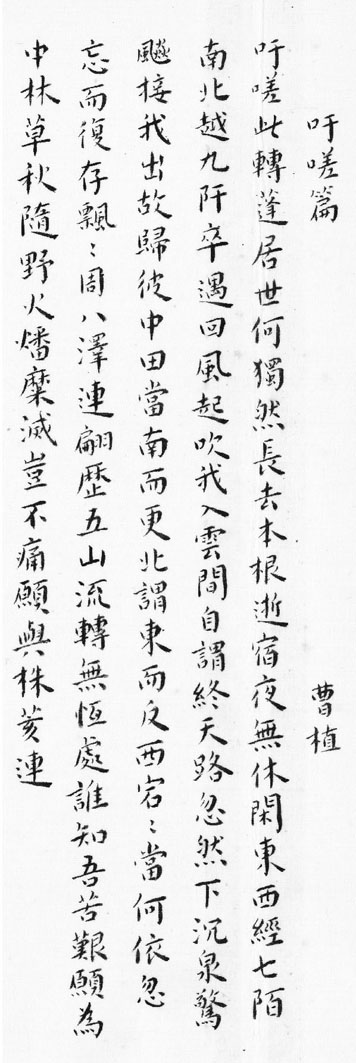 吁嗟篇 曹植
吁嗟此轉蓬居世何獨然長去本根逝宿夜無休閑東西經七陌
南北越九阡卒遇回風起吹我入雲間自謂終天路忽然下沉泉驚
飈接我出故歸彼中田當南而更北謂東而反西宕〻當何依忽
忘而復存飄〻周八澤連翩歷五山流轉無恆處誰知吾苦艱願為
中林草秋隨野火燔糜滅豈不痛願與株荄連